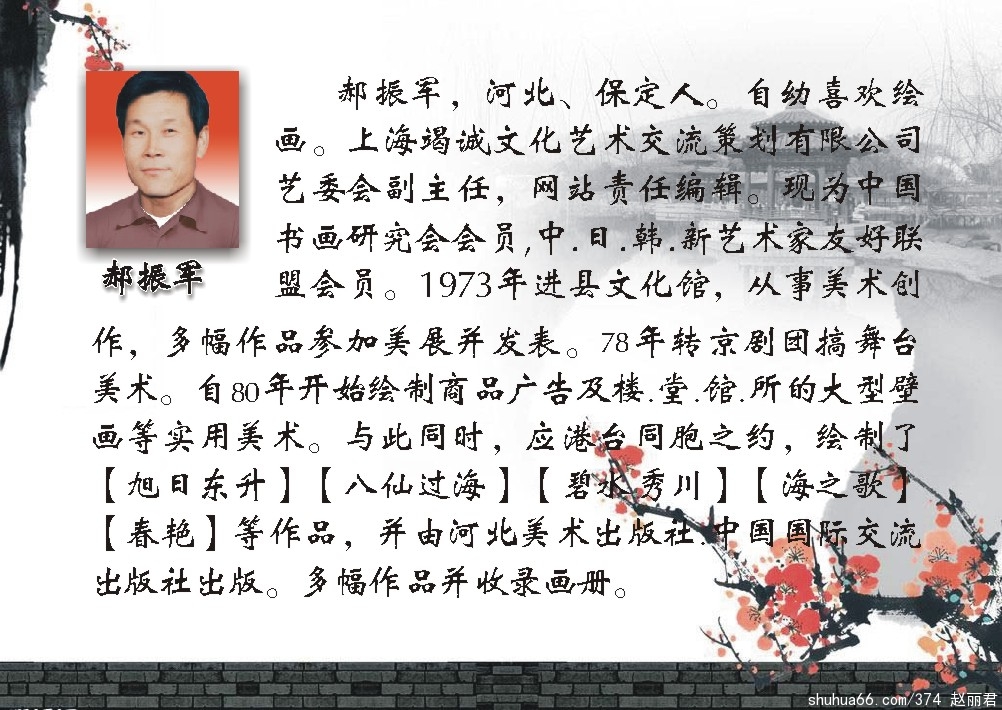 郝振军，河北、保定人。自幼喜欢绘
画。上海竭诚文化艺术交流策划有限公司
艺委会副主任，网站责任编辑。现为中国
书画研究会会员,中.日.韩.新艺术家友好联
盟会员。1973年进县文化馆，从事美术创
郝振军
作，多幅作品参加美展并发表。78年转京剧团搞舞台
美术。自80年开始绘制商品广告及楼.堂.馆.所的大型壁
画等实用美术。与此同时，应港台同胞之约，绘制了
【旭日东升】【八仙过海】【碧水秀川】【海之歌】
【春艳】等作品，并由河北美术出版社.中国国际交流
出版社出版。多幅作品并收录画册。
shuhua66.com/374 赵丽君